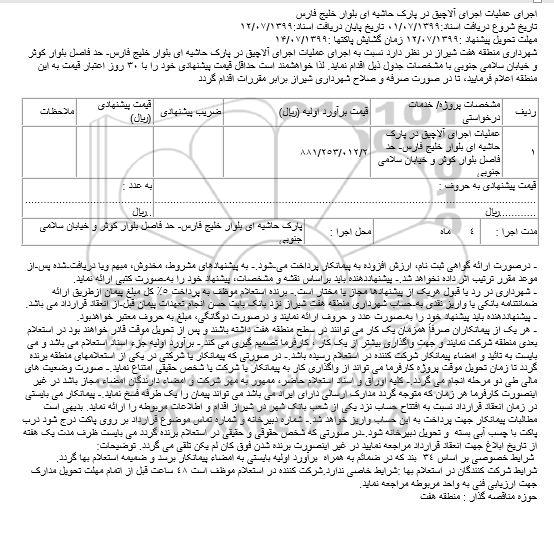 اجرای عملیات اجرای آلاچیق در پارک حاشیه ای بلوار خلیج فارس
تاریخ شروع دریافت اسناد:۰۱/۰۷/۱۳۹۹ تاریخ پایان دریافت اسناد:۱۲/۰۷/۱۳۹۹
مهلت تحویل پیشنهاد :۱۲/۰۷/۱۳۹۹ زمان گشایش پاکتها :۱۴/۰۷/۱۳۹۹
شهرداری منطقه هفت شیراز در نظر دارد نسبت به اجرای عملیات اجرای آلاچیق در پارک حاشیه ای بلوار خلیج فارس- حد فاصل بلوار کوثر
و خیابان سلامی جنوبی با مشخصات جدول ذیل اقدام نماید. لذا خواهشمند است حداقل قیمت پیشنهادی خود را با ۳۰ روز اعتبار قیمت به این
منطقه اعلام فرمایید، تا در صورت صرفه و صلاح شهرداری شیراز برابر مقررات اقدام گردد
ردیف مشخصات پروژه/ خدمات درخواستی قیمت برآورد اولیه (ریال) ضریب پیشنهادی قیمت پیشنهادی (ریال) ملاحظات
۱ عملیات اجرای آلاچیق در پارک
حاشیه ای بلوار خلیج فارس- حد
فاصل بلوار کوثر و خیابان سلامی
جنوبی ۸۸۱/۲۵۳/۰۱۲/۲
قیمت پیشنهادی به حروف : به عدد :
............ریال ..ریال
مدت اجرا : ۴ ماه محل اجرا : پارک حاشیه ای بلوار خلیج فارس- حد فاصل بلوار کوثر و خیابان سلامی
جنوبی
ـ درصورت ارائه گواهی ثبت نام، ارزش افزوده به پیمانکار پرداخت می‌شود.ـ به پیشنهادهای مشروط، مخدوش، مبهم ویا دریافت‌شده پس‌از
موعد مقرر ترتیب اثر داده نخواهد شد.ـ پیشنهاددهنده باید براساس نقشه و مشخصات، پیشنهاد خود را به‌صورت کتبی ارائه نماید.
ـ شهرداری در رد یا قبول هریک از پیشنهادها مجاز یا مختار است.ـ برنده استعلام موظف به پرداخت ۵٪ کل مبلغ پیمان ازطریق ارائه
ضمانتنامه بانکی یا واریز نقدی به‌حساب شهرداری منطقه هفت شیراز نزد بانک بابت حسن انجام تعهدات پیمان قبل‌از انعقاد قرارداد می باشد.
ـ پیشنهاددهنده باید پیشنهاد خود را به‌صورت عدد و حروف ارائه نمایند و درصورت دوگانگی، مبلغ به حروف معتبر خواهدبود.
ـ هر یک از پیمانکاران صرفاً همزمان یک کار می توانند در سطح منطقه هفت داشته باشند و پس از تحویل موقت قادر خواهند بود در استعلام
بعدی منطقه شرکت نمایند و جهت واگذاری بیشتر از یک کار ، کارفرما تصمیم گیری می کند.ـ برآورد اولیه جزء اسناد استعلام می باشد و می
بایست به تائید و امضاء پیمانکار شرکت کننده در استعلام رسیده باشد.ـ در صورتی که پیمانکار یا شرکتی در یکی از استعلامهای منطقه برنده
گردد تا زمان تحویل موقت پروژه کارفرما می تواند از واگذاری کار به پیمانکار یا شرکت یا شخص حقیقی امتناع نماید.ـ صورت وضعیت های
مالی طی دو مرحله انجام می گردد.ـ کلیه اوراق و اسناد استعلام حاضر، ممهور به مهر شرکت و امضاء دارندگان امضاء مجاز باشد در غیر
اینصورت کارفرما هر زمان که متوجه گردد مدارک ارسالی دارای ایراد می باشد می تواند پیمان را یک طرفه فسخ نماید.ـ پیمانکار می بایستی
در زمان انعقاد قرارداد نسبت به افتتاح حساب نزد یکی از شعب بانک شهر در شیراز اقدام و اطلاعات مربوطه را ارائه نماید. بدیهی است
مطالبات پیمانکار جهت پرداخت به این حساب واریز خواهد شد.ـ شماره دبیرخانه و شماره تماس موضوع قرارداد بر روی پاکت درج شود درب
پاکت با چسب آبی بسته و تحویل دبیرخانه شود.ـدر صورتی که شخص حقوقی و حقیقی در استعلام برنده گردد می بایست ظرف مدت یک هفته
از تاریخ ابلاغ جهت انعقاد قرارداد مراجعه نمایید در غیر اینصورت برنده شدن فوق کان لم یکن تلقی می گردد. توضیحات:
شرایط خصوصی بر اساس ۳۴ بند که در ضمائم به همراه برآورد اولیه بایستی به امضاء پیمانکار برسد و ضمیمه استعلام بها گردد.
شرایط شرکت کنندگان در استعلام بها :شرایط خاصی ندارد.شرکت کننده در استعلام موظف است ۴۸ ساعت قبل از اتمام مهلت تحویل مدارک
جهت ارزیابی فنی به واحد مربوطه مراجعه نماید.
حوزه مناقصه گذار : منطقه هفت